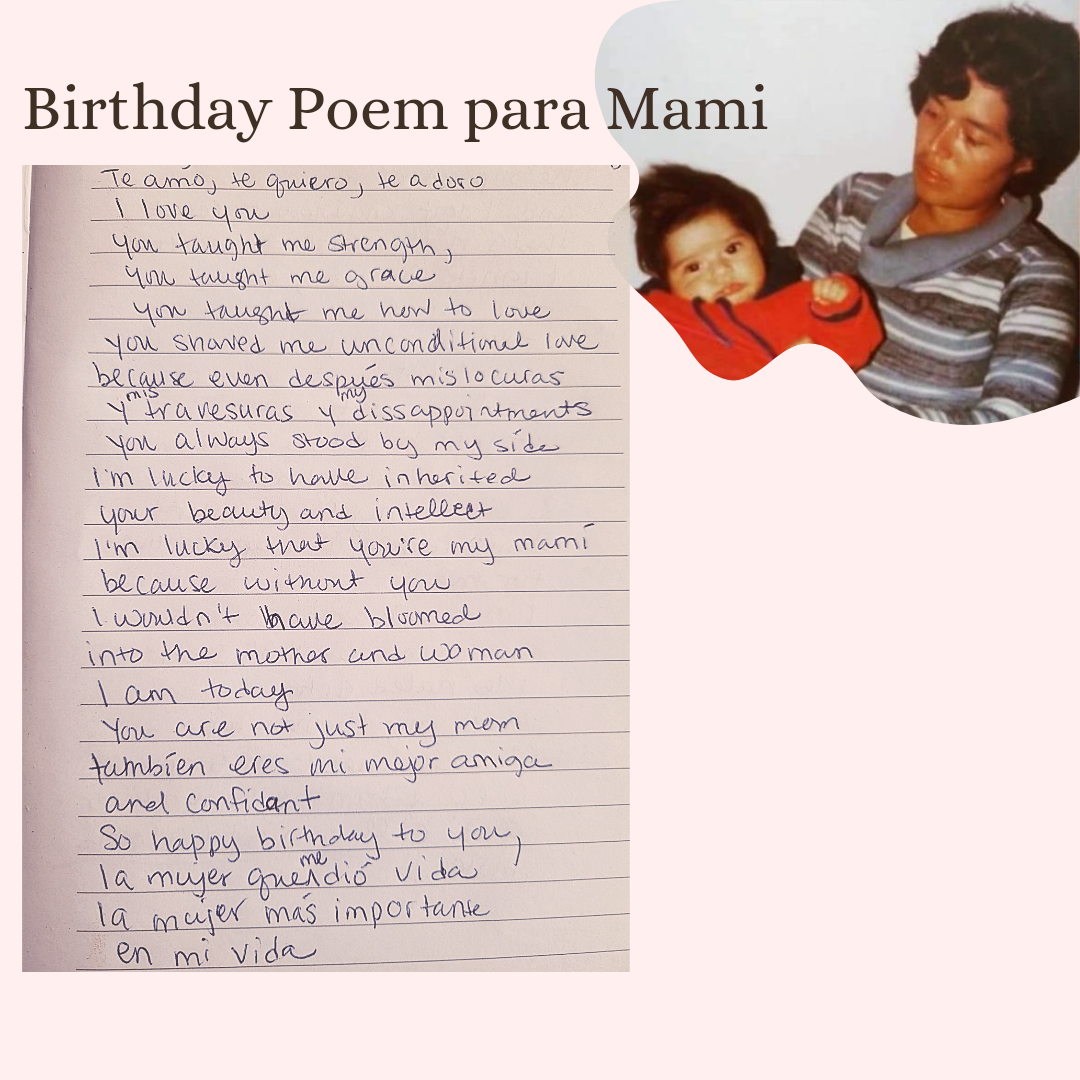 Birthday Poem para Mami
Te amo, te quiero, te adoro
I love you
you taught me strength,
you taught me grace
you taught me how to love
you showed me unconditional love
because even después mis locuras
y mis travesuras y my dissappointments
you always stood by my side
I'm lucky to have inherited
your beauty and intellect
I'm lucky that you're my mamí
because without you
I wouldn't have bloomed
into the mother and woman
I am today
You are not just my mom
tambíen eres mi mejor amiga
and confidant
So happy birthday to you,
la mujer que me dió vida
la mujer más importante
en mi vida